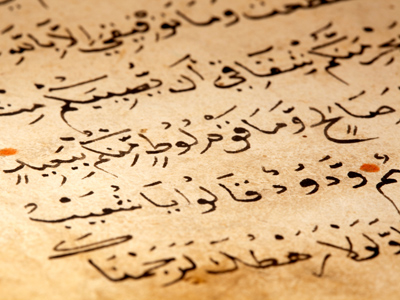 وَمَا تَوْفِيقِي إِلَّا
شِقَاقِي أَن يُصِيبَكُم
صَالِحٍ وَمَا قَوْمُ لُوطٍ مِنْكُمْ بِبَعِيدٍ
وَدُودٌ قَالُوا يَا شُعَيْبُ
وَلَوْلَا رَهْطُكَ لَرَجَمْنَاكَ